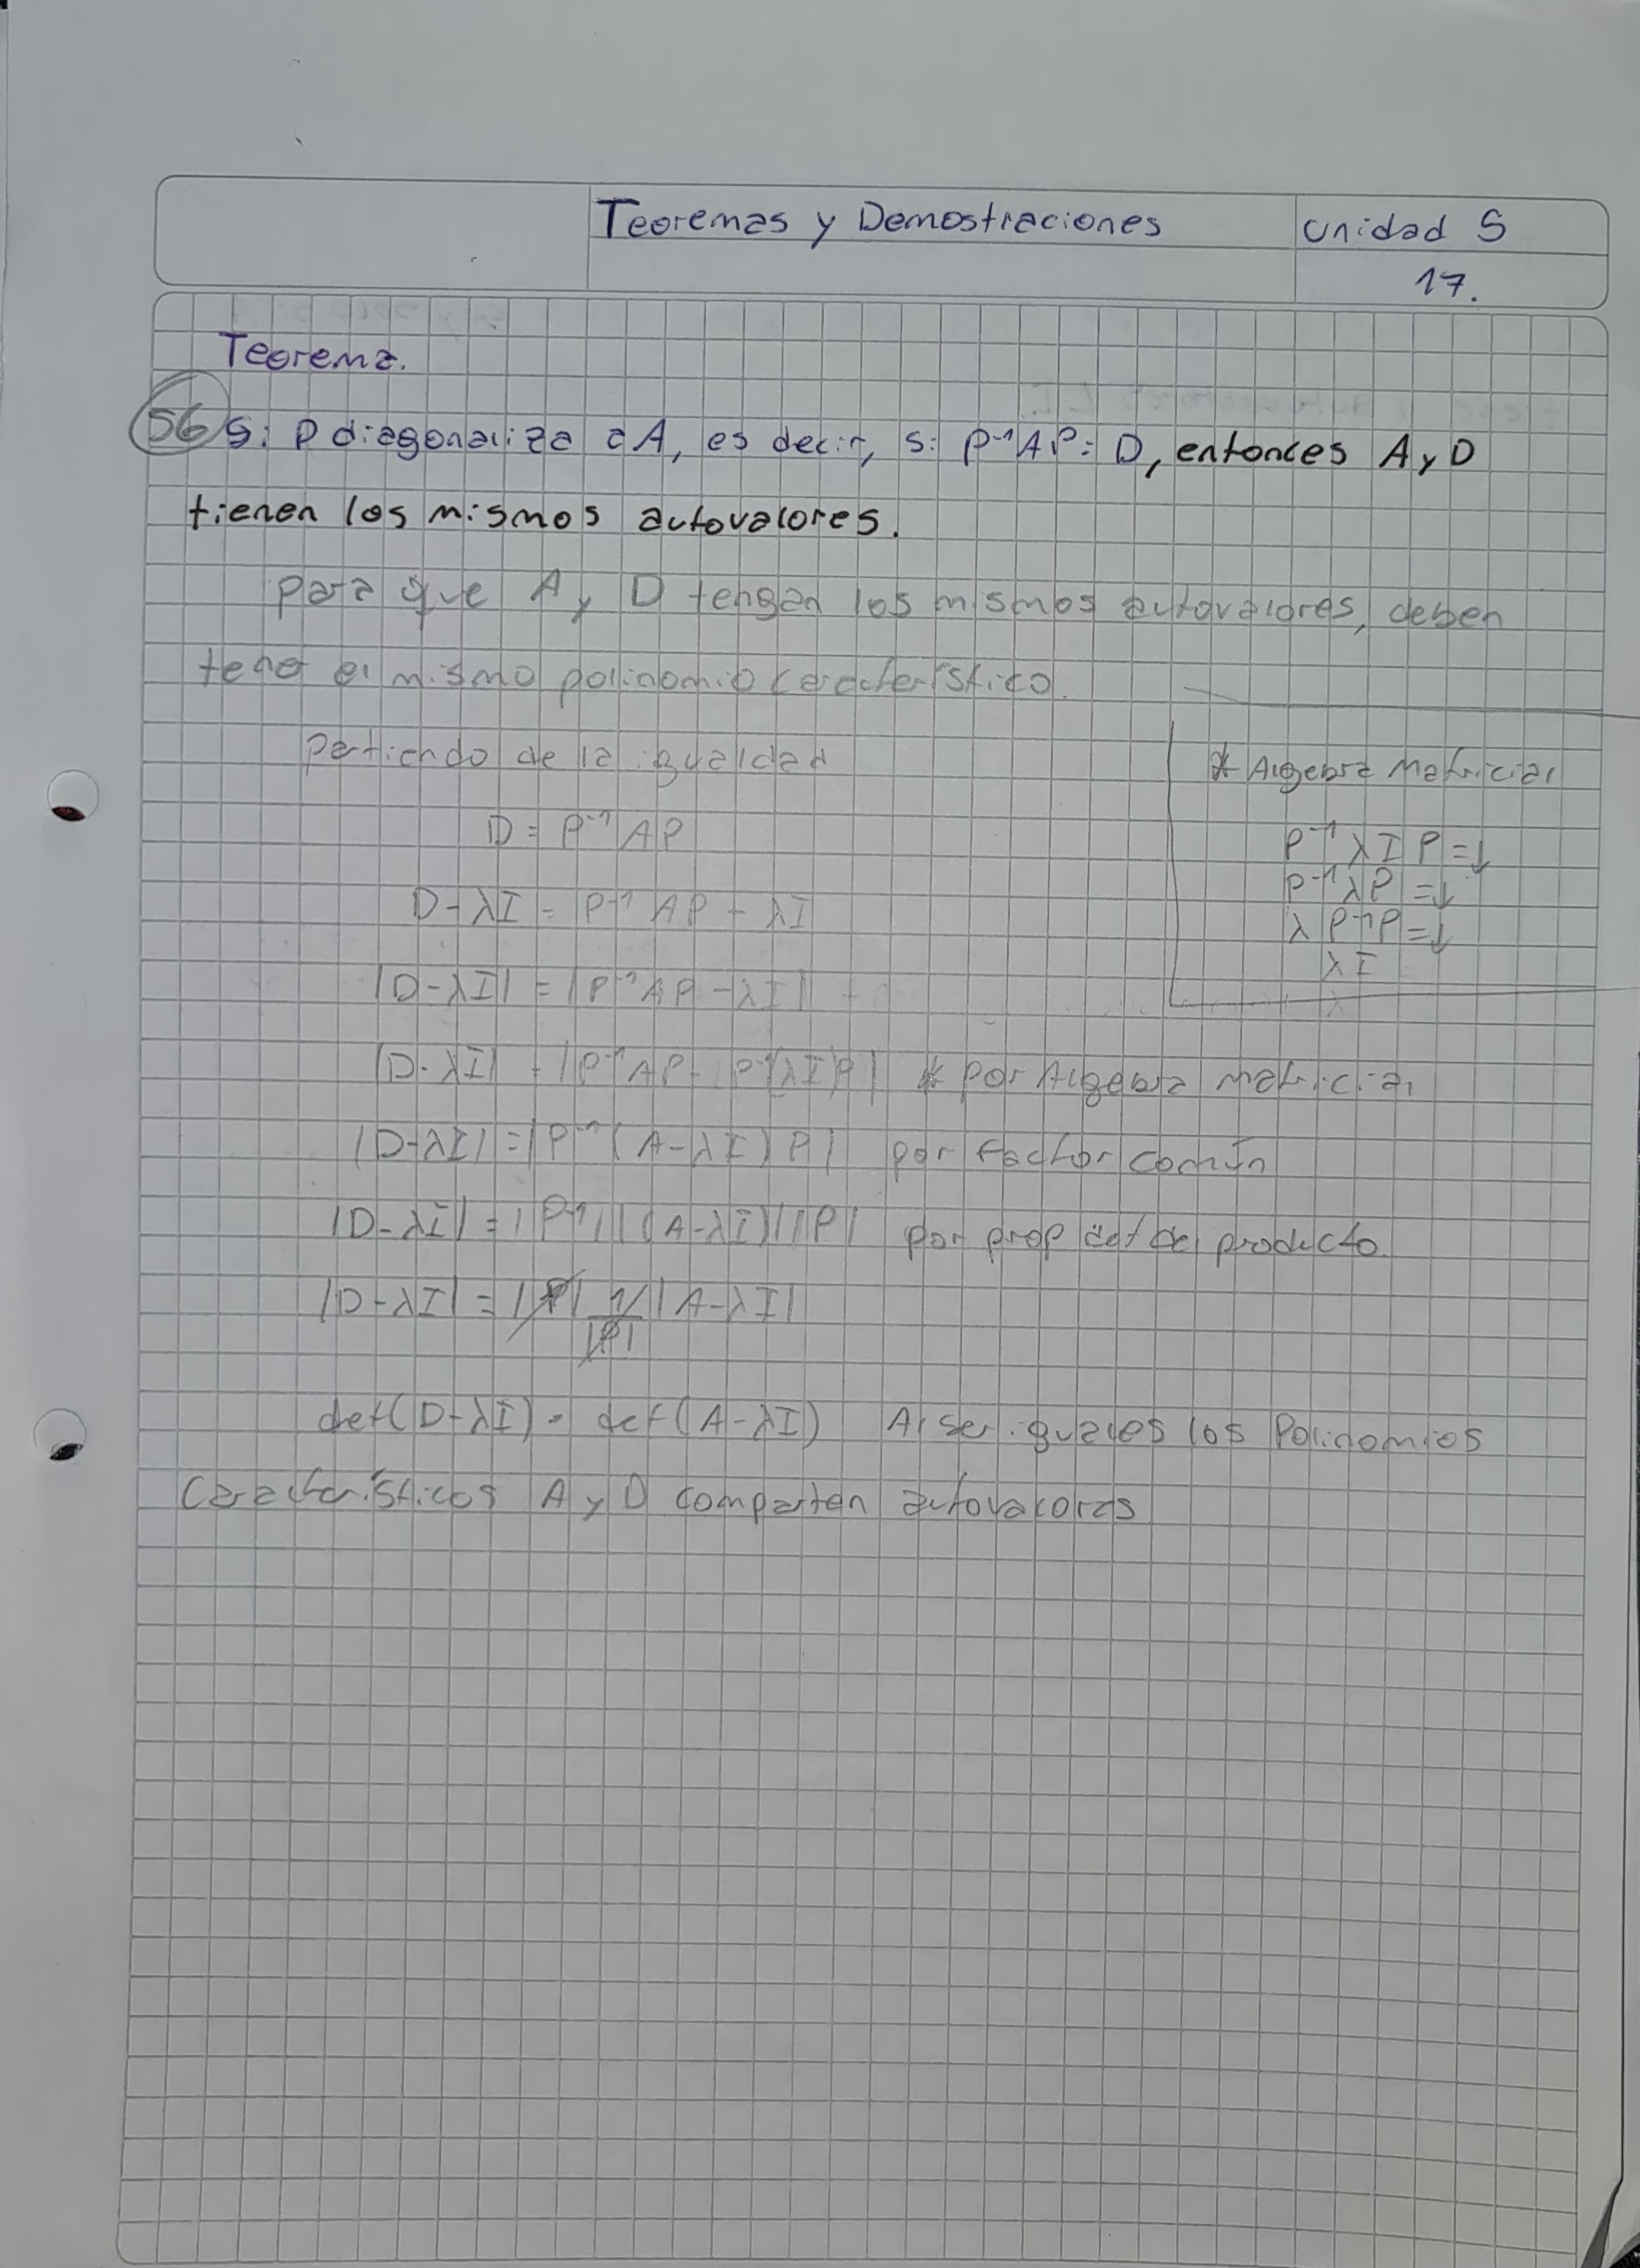 Teoremas y Demostraciones
Unidad 5
17.
Teorema.
56 Si P diagonaliza a A, es decir, si P⁻¹AP = D, entonces A y D
tienen los mismos autovalores.
para que A y D tengan los mismos autovalores, deben
tener el mismo polinomio característico.
Partiendo de la igualdad
D = P⁻¹AP
D - λI = P⁻¹AP - λI
|D - λI| = |P⁻¹AP - λI|
|D - λI| = |P⁻¹AP - P⁻¹(λI)P| * Por Algebra matricial
|D - λI| = |P⁻¹(A - λI)P| por factor común
|D - λI| = |P⁻¹||(A - λI)||P| por prop det del producto.
|D - λI| = |P| 1/|P| |A - λI|
det(D - λI) = det(A - λI) Al ser iguales los Polinomios
Característicos A y D comparten autovalores
* Algebra Matricial
P⁻¹λIP = ↓
P⁻¹λP = ↓
λP⁻¹P = ↓
λI